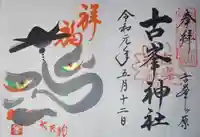 奉拝
古峯ヶ原
古峯神社
令和元年五月十二日
祥